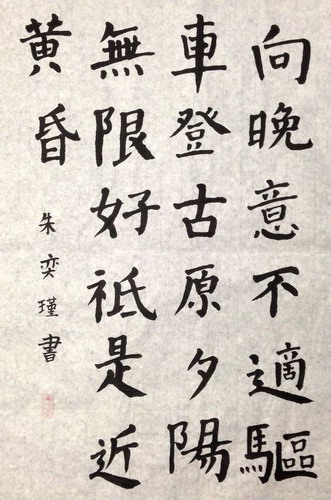 向晚意不適驅
車登古原夕陽
無限好祗是近
黄昏
朱奕瑾書